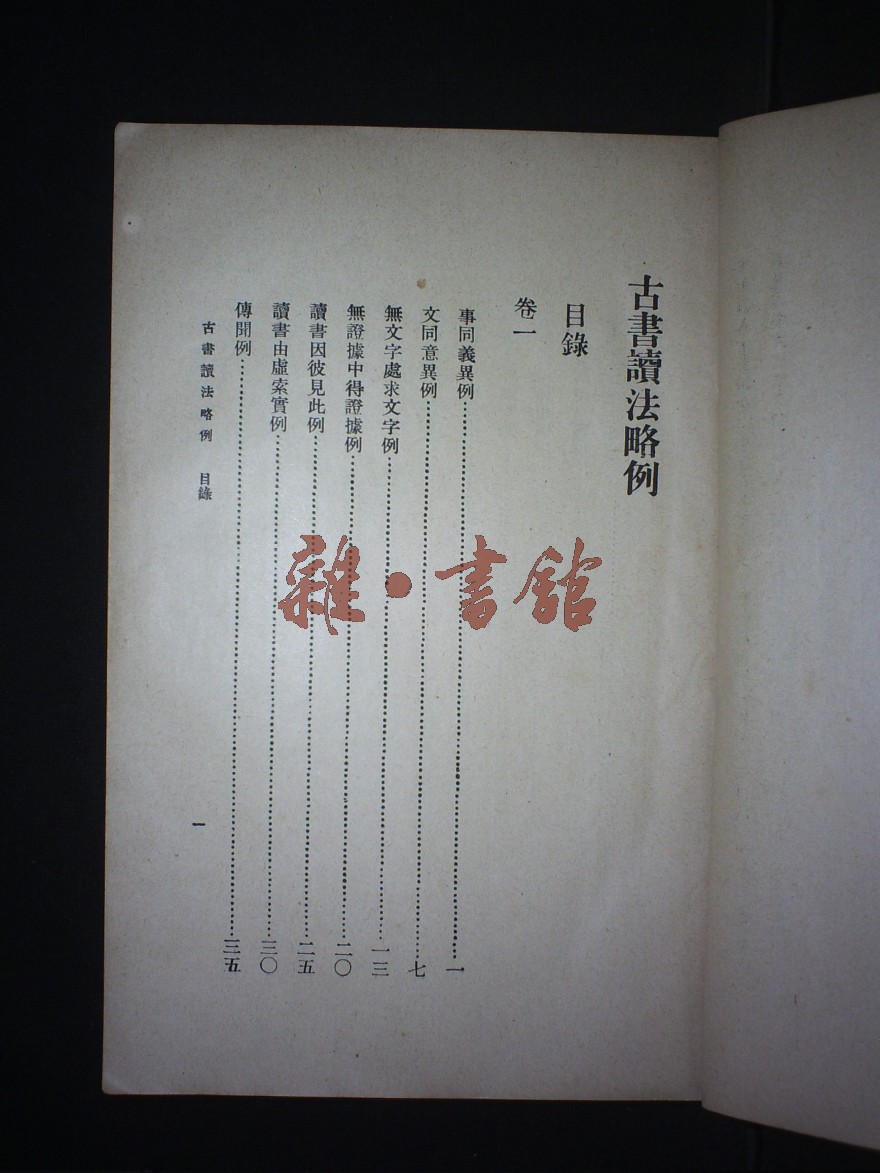 古書讀法略例
目錄
卷一
事同義異例……一
文同意異例……七
無文字處求文字例……一三
無證據中得證據例……二〇
讀書因彼見此例……二五
讀書由虛索實例……三〇
傳聞例……三五
古書讀法略例 目錄
一
雜·書館